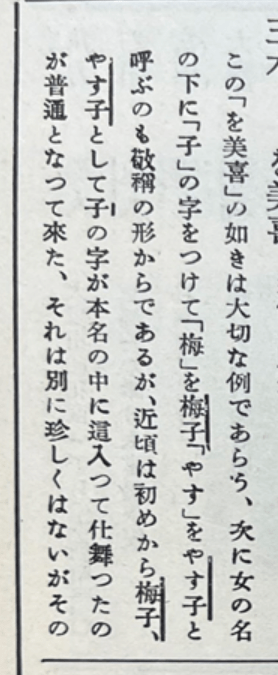 この「を美喜」の如きは大切な例であらう、次に女の名
の下に「子」の字をつけて「梅」を梅子「やす」をやす子と
呼ぶのも敬稱の形からであるが、近頃は初めから梅子、
やす子として子の字が本名の中に這入つて仕舞つたの
が普通となつて來た、それは別に珍しくはないがその